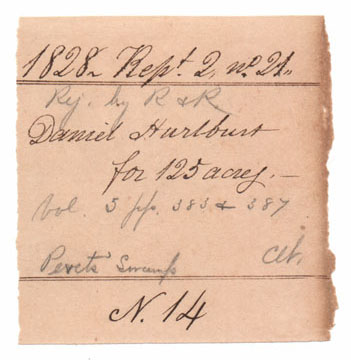 1828. Rept. 2, no. 21.
Rej. by R & R
Daniel Hurlburt
for 125 acres. —
Vol. 5 pp. 383 & 387
Swamp
N. 14